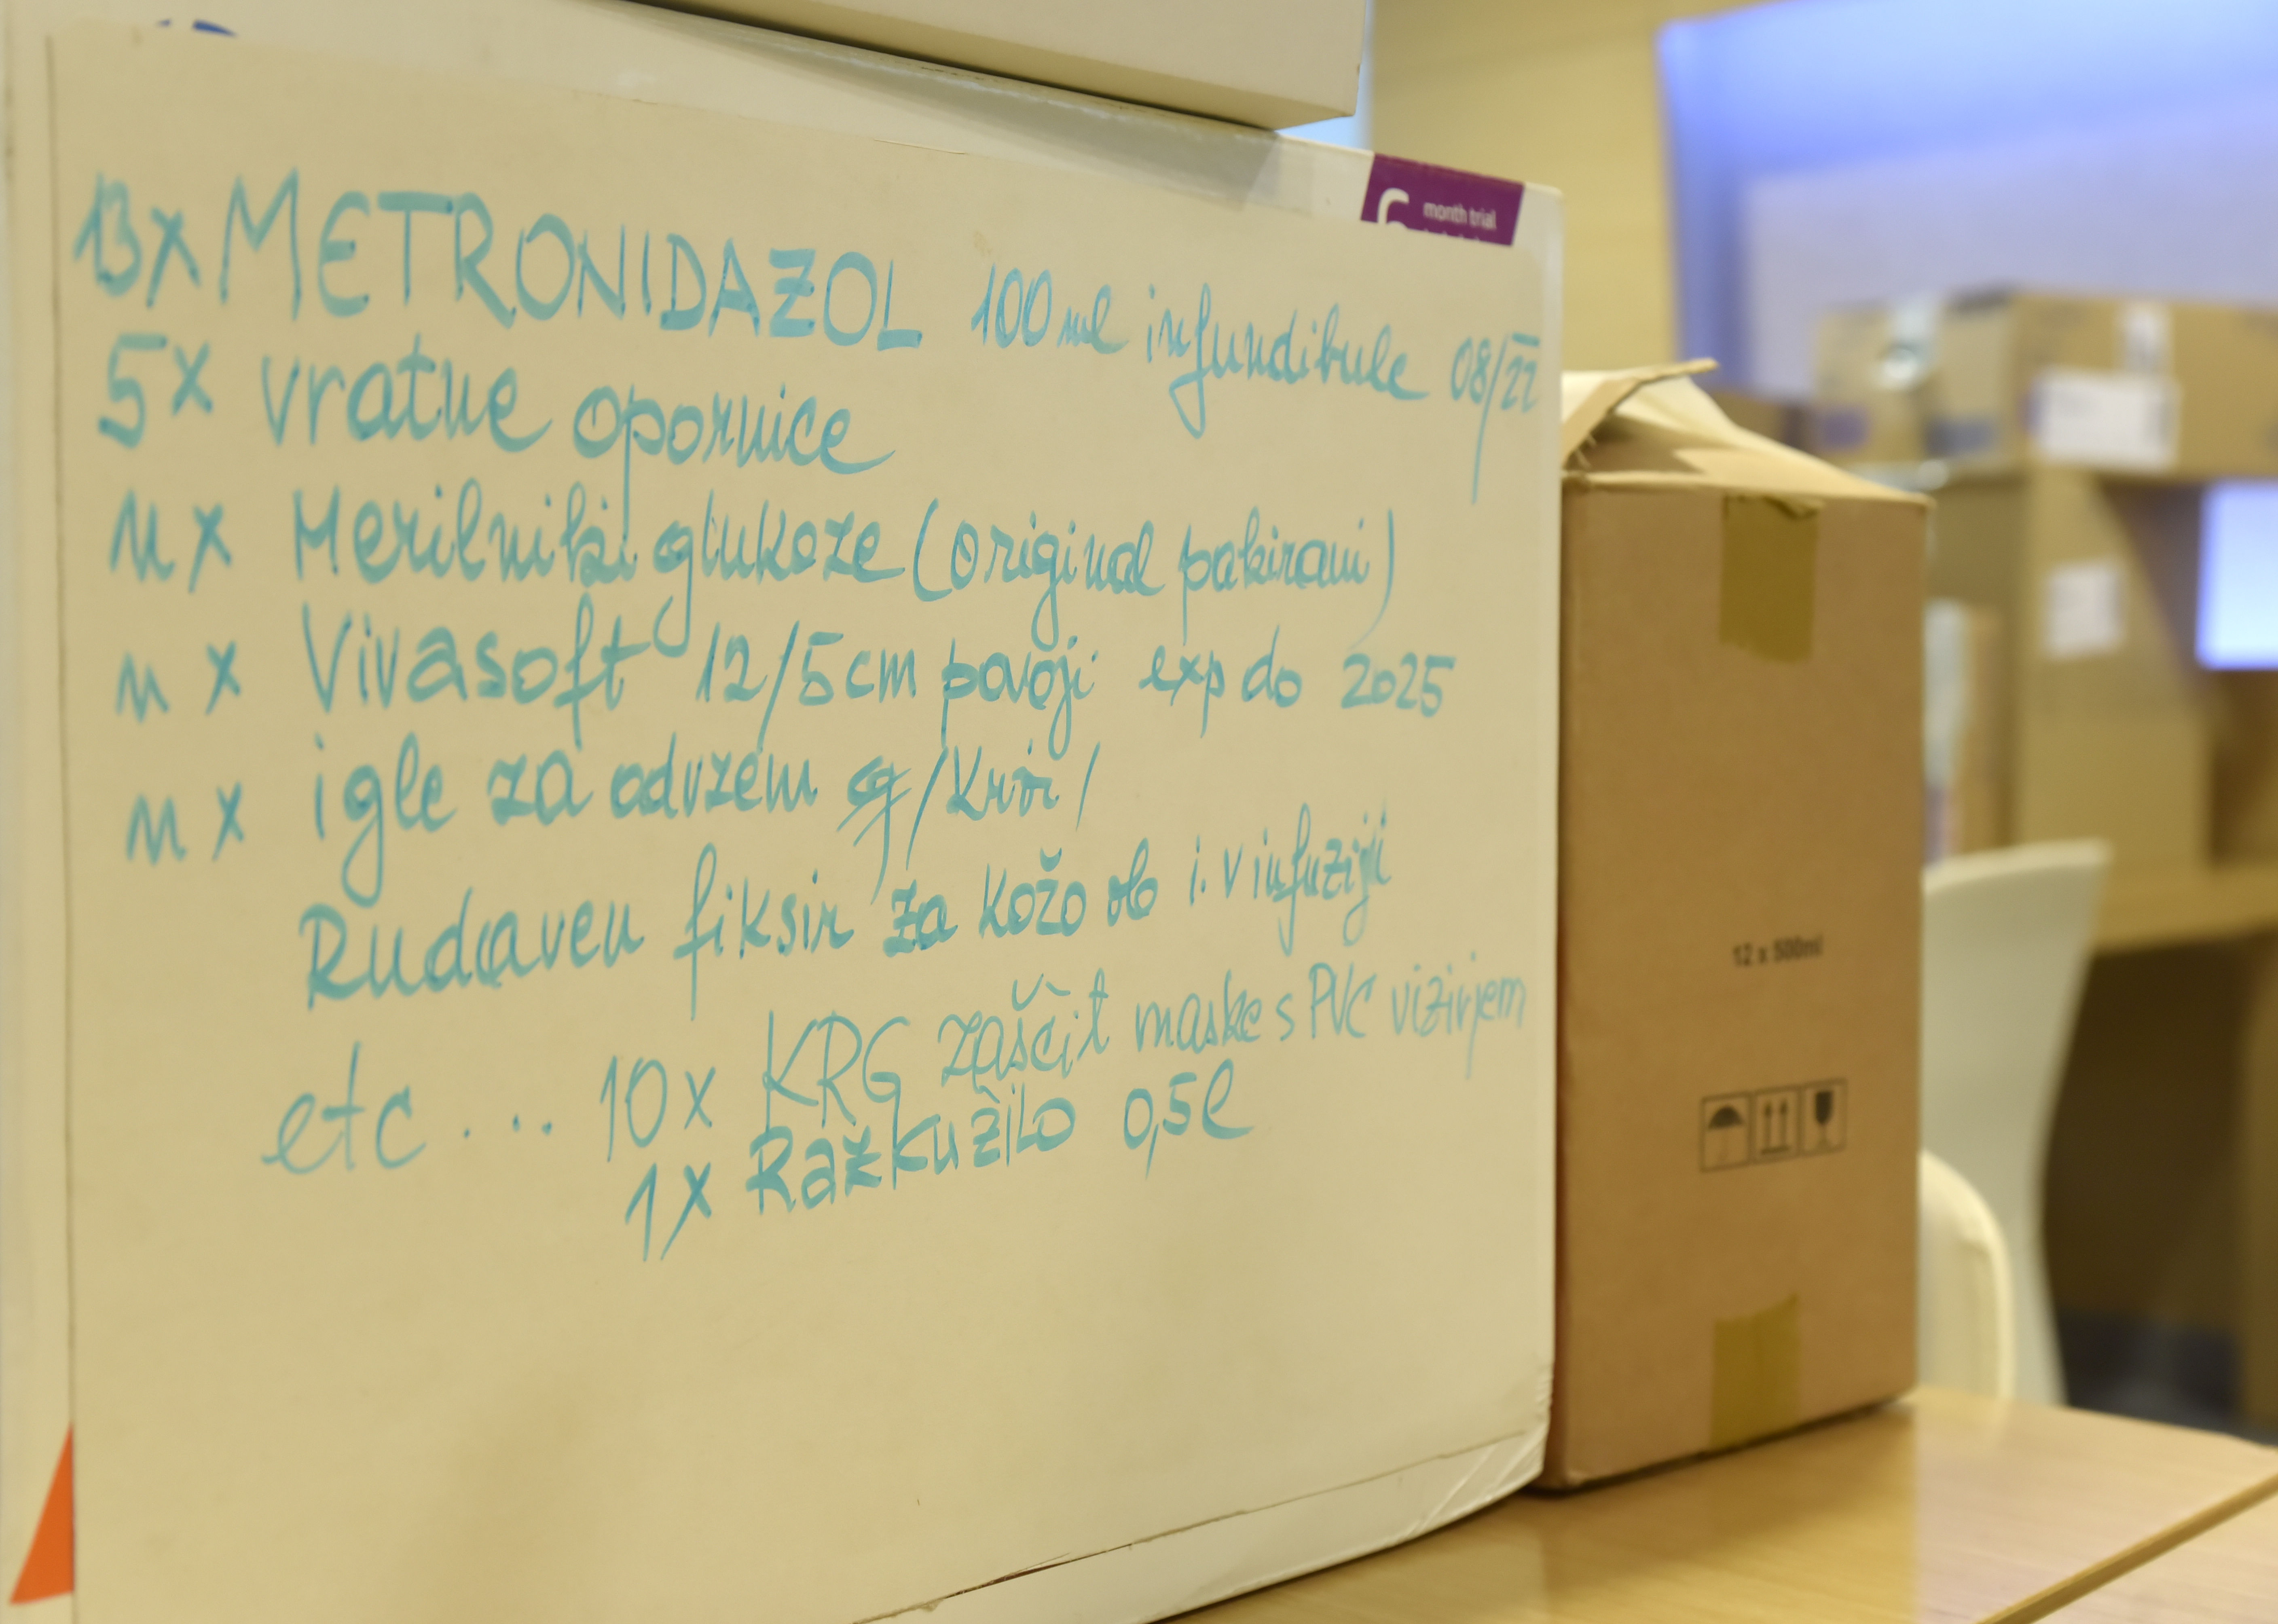 13x METRONIDAZOL 100ml infundibule 08/22
5x vratne opornice
n x Merilniki glukoze (original pakirani)
n x Vivasoft 12/5cm povoji exp do 2025
n x igle za odvzem /krvi/
Rudaven fiksir za kožo ob i.v infuziji
etc... 10x KRG zaščit maske s PVC vizirjem
1x Razkužilo 0,5l
month trial
12 x 500ml